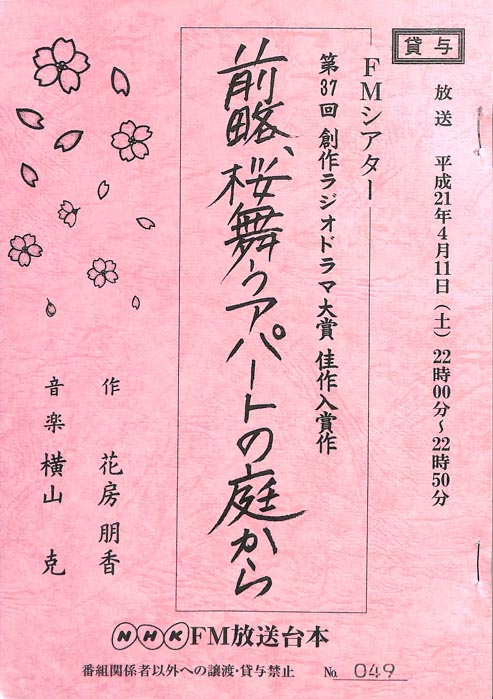 貸与
放送 平成21年4月11日（土）22時00分～22時50分
FMシアター
第37回 創作ラジオドラマ大賞 佳作入賞作
前略、桜舞うアパートの庭から
作 花房朋香
音楽 横山 克
NHK FM放送台本
番組関係者以外への譲渡・貸与禁止 № 049